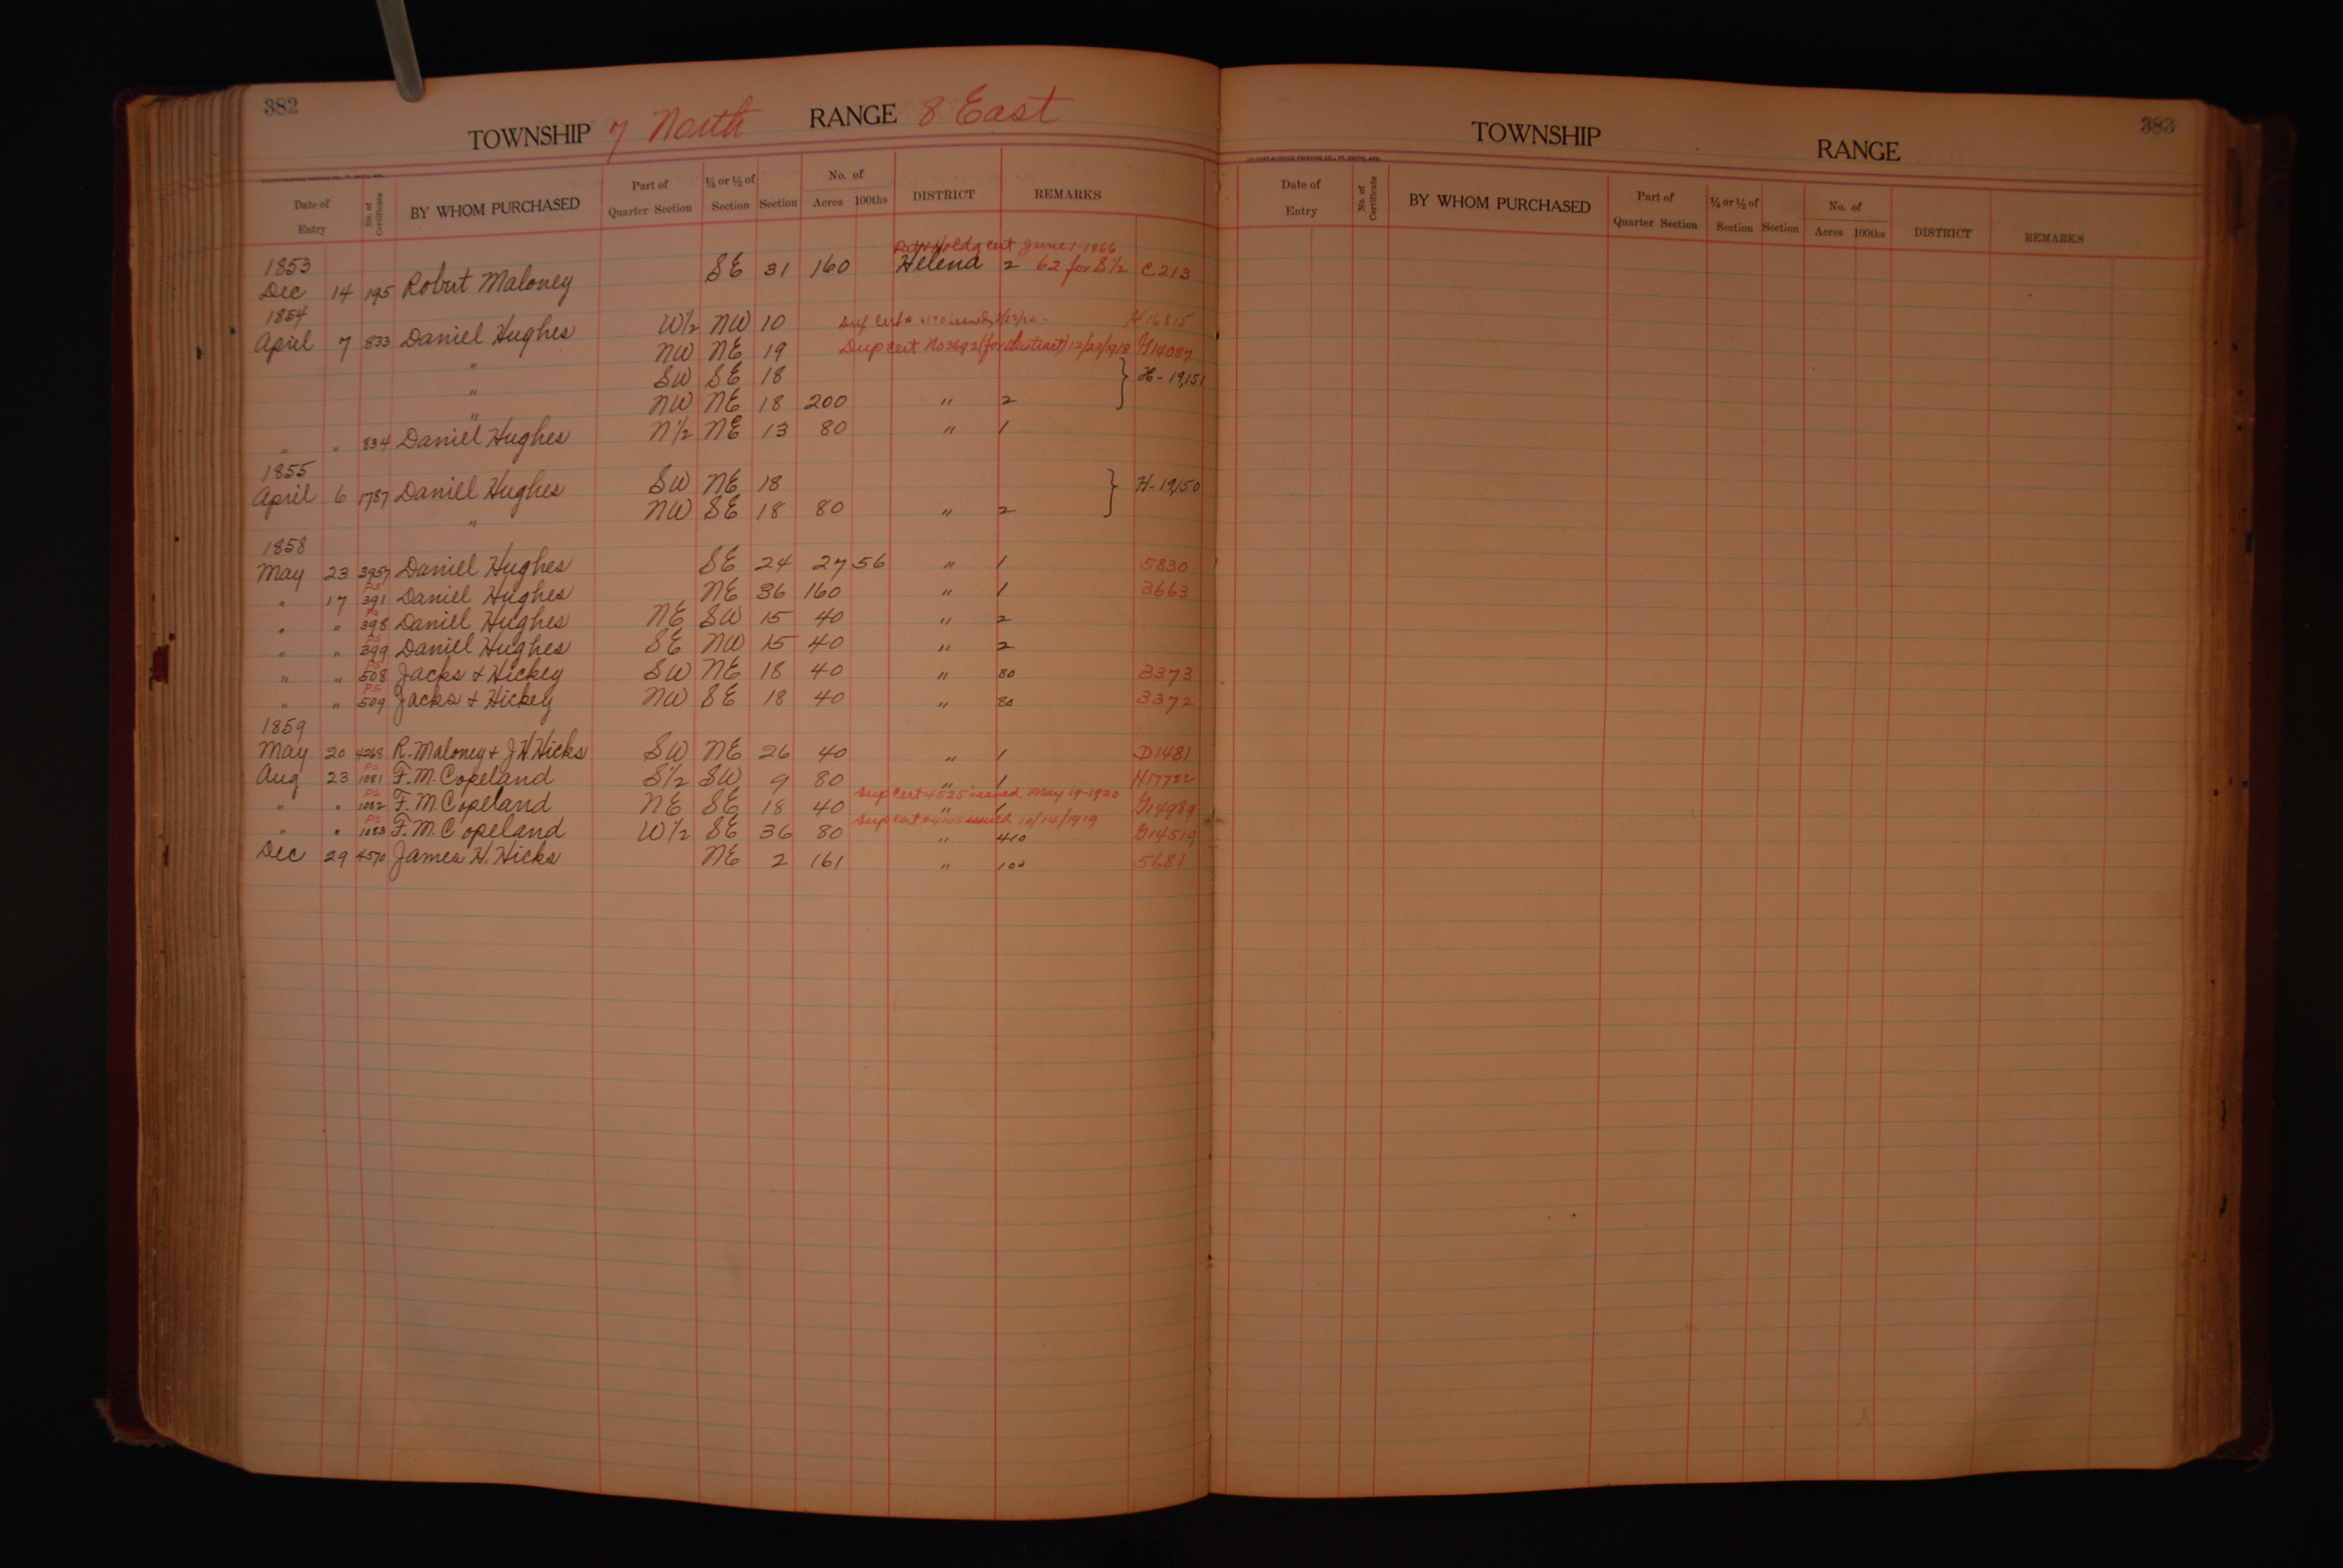 382
TOWNSHIP 7 North RANGE 8 East
Date of Entry No. of Certificate BY WHOM PURCHASED Part of Quarter Section ¼ or ½ of Section Section No. of Acres 100ths DISTRICT REMARKS
cert June 1-1866
1853
Dec 14 195 Robert Maloney SE 31 160 Helena 2 62 for S½ C213
1854
April 7 833 Daniel Hughes W½ NW 10 H16815
" NW NE 19 Dup cert No 3692 (for abstract) 12/23/1918 G14087
" SW SE 18 } H-19,151
" NW NE 18 200 " 2
" " 834 Daniel Hughes N½ NE 13 80 " 1
1855
April 6 1787 Daniel Hughes SW NE 18 } H-19,150
" NW SE 18 80 " 2
1858
May 23 3957 Daniel Hughes SE 24 27 56 " 1 5830
" 17 PS 391 Daniel Hughes NE 36 160 " 1 3663
" " PS 398 Daniel Hughes NE SW 15 40 " 2
" " PS 399 Daniel Hughes SE NW 15 40 " 2
" " PS 508 Jacks & Hickey SW NE 18 40 " 80 3373
" " PS 509 Jacks & Hickey NW SE 18 40 " 80 3372
1859
May 20 4268 R. Maloney & J.H. Hicks SW NE 26 40 " 1 D1481
Aug 23 PS 1081 F.M. Copeland S½ SW 9 80 " 1 H17722
Dup cert 4525 issued May 19-1920
" " PS 1082 F.M. Copeland NE SE 18 40 " 1 G14989
Dup cert #4105 issued 10/14/1919
" " PS 1083 F.M. Copeland W½ SE 36 80 " 410 G14519
Dec 29 4570 James H. Hicks NE 2 161 " 100 5681
383
TOWNSHIP RANGE
Date of Entry No. of Certificate BY WHOM PURCHASED Part of Quarter Section ¼ or ½ of Section Section No. of Acres 100ths DISTRICT REMARKS